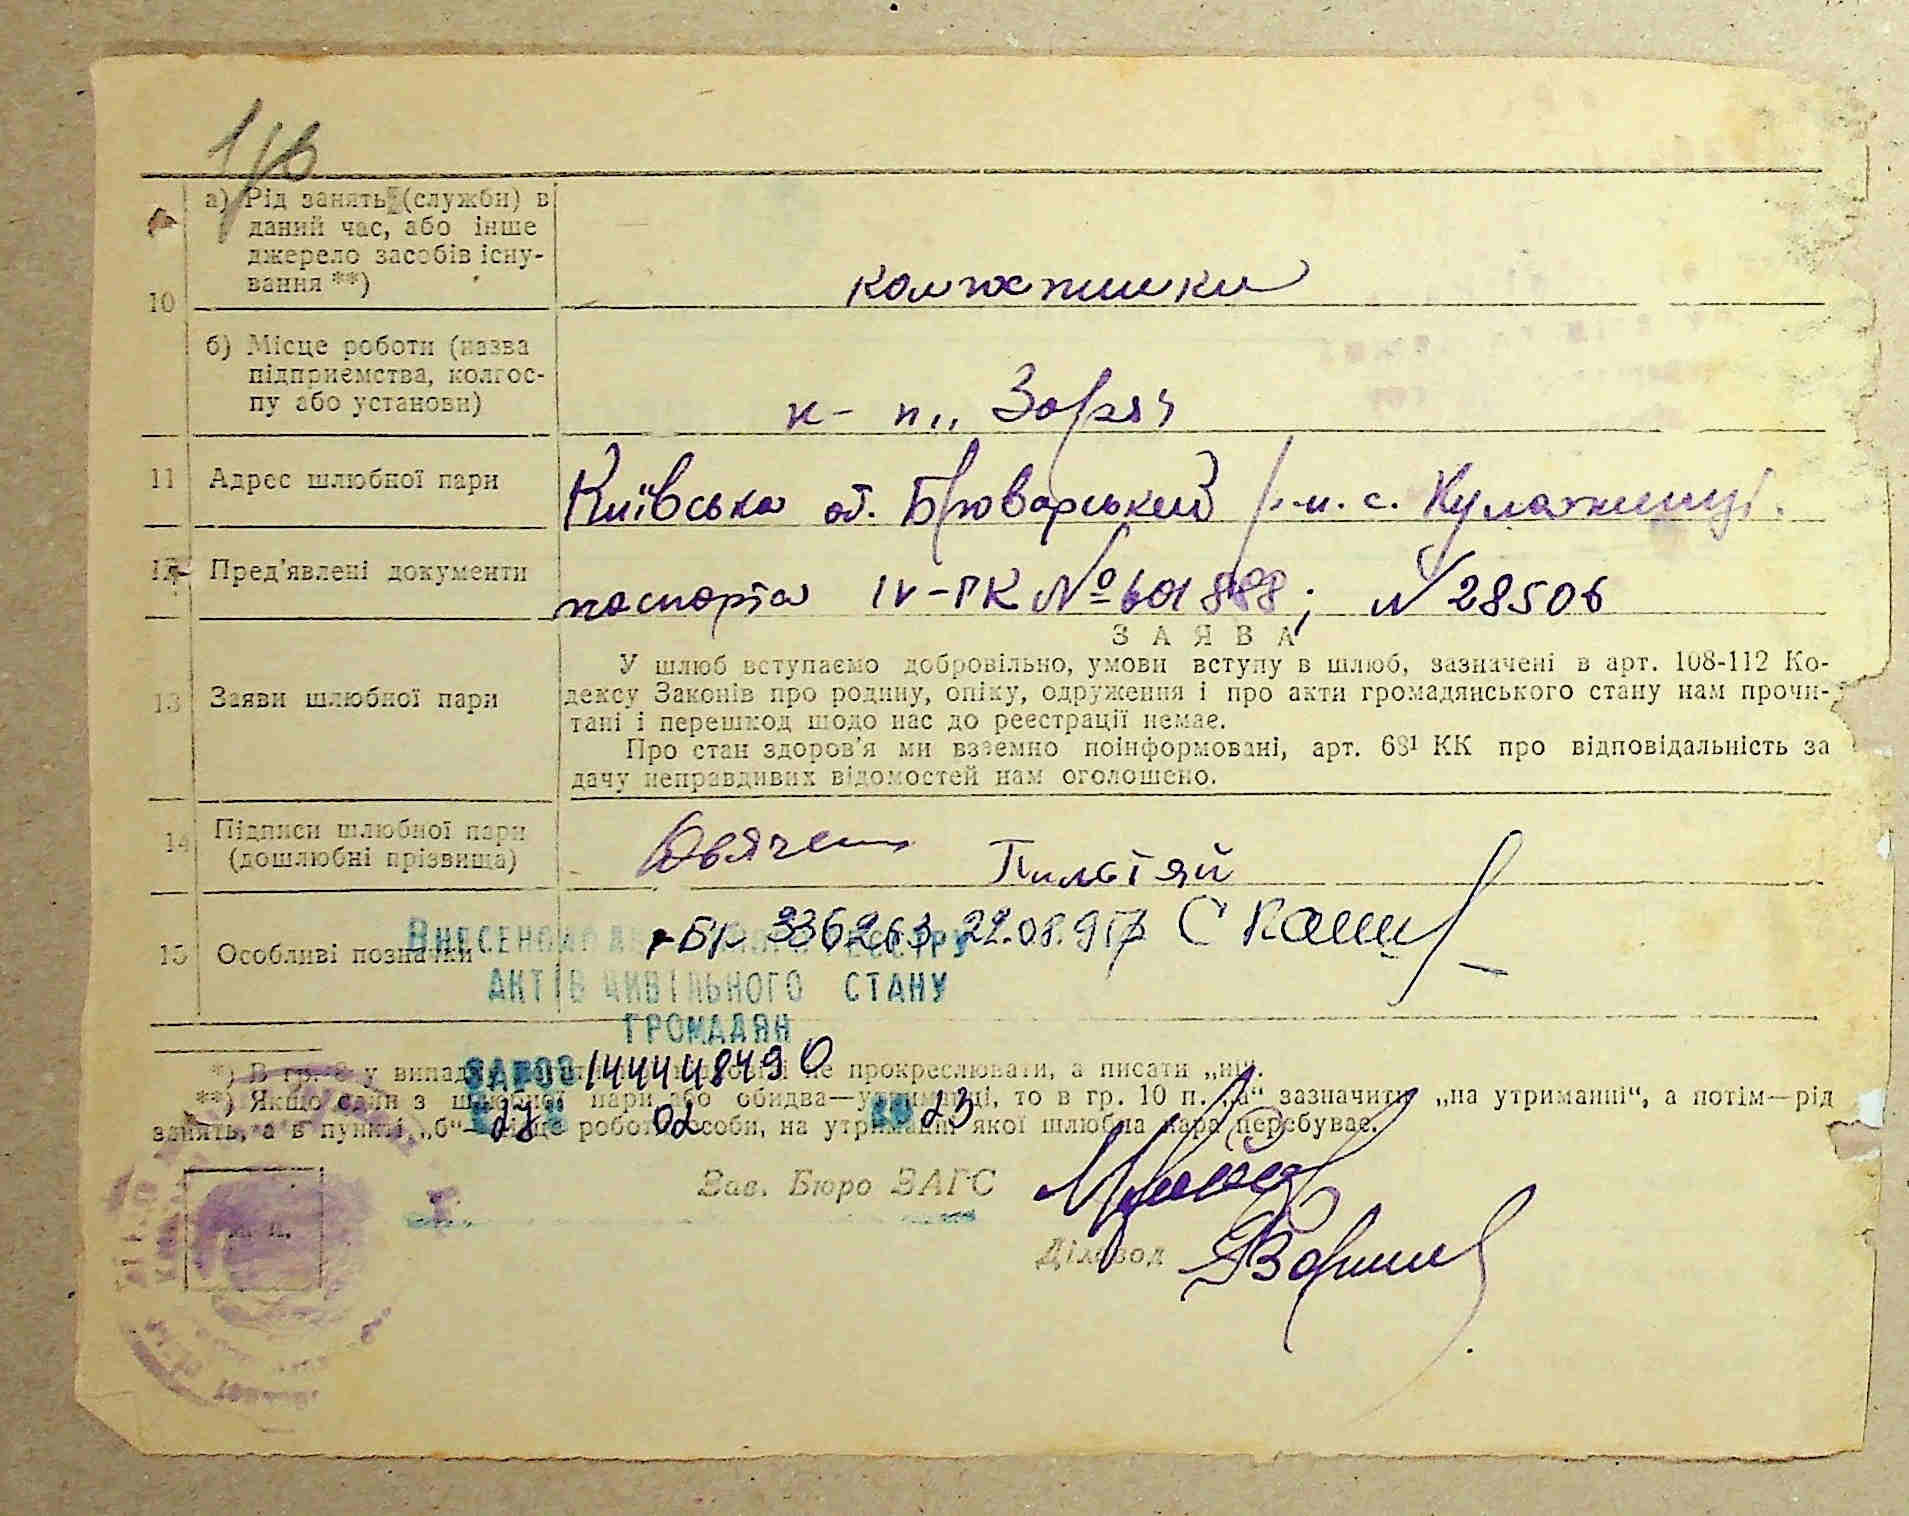 а) Рід занять (служби) в
даний час, або інше
джерело засобів існу-
вання **)
10
колгоспники
б) Місце роботи (назва
підприємства, колгос-
пу або установи)
к-п „Заря"
11 Адрес шлюбної пари
Київська об. Броварський р-н. с.
12 Пред'явлені документи
паспорта IV-РК № 601888; № 28506
ЗАЯВА
13 Заяви шлюбної пари
У шлюб вступаємо добровільно, умови вступу в шлюб, зазначені в арт. 108-112 Ко-
дексу Законів про родину, опіку, одруження і про акти громадянського стану нам прочи-
тані і перешкод щодо нас до реєстрації немає.
Про стан здоров'я ми взаємно поінформовані, арт. 68¹ КК про відповідальність за
дачу неправдивих відомостей нам оголошено.
14 Підписи шлюбної пари
(дошлюбні прізвища)
15 Особливі позначки
БР 336263 22.08.957
ВНЕСЕНО ДО РЕЄСТРУ
АКТІВ ЦИВІЛЬНОГО СТАНУ
ГРОМАДЯН
ЗА №00144448490
27 02 2023
*) В гр. 8 у випадку не прокреслювати, а писати „ні".
**) Якщо один з шлюбної пари або обидва—утриманці, то в гр. 10 п. „а" зазначити „на утриманні", а потім—рід
занять, а в пункті „б"—місце роботи особи, на утриманні якої шлюбна пара перебуває.
Зав. Бюро ЗАГС
М. П.
Діловод